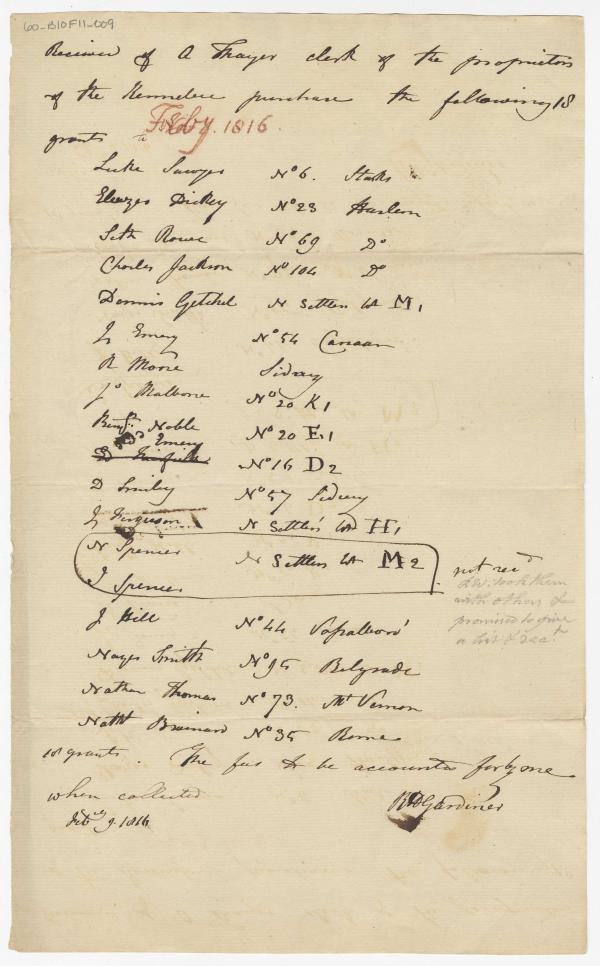 60-B10F11-009
Received of A Thayer clerk of the proprietors
of the Kennebec purchase the following 18
Feby. 1816.
grants
Luke Sawyer No 6. Starks
Eleazer Dickey No 23 Harlem
Seth Rowe No 69 Do
Charles Jackson No 104 Do
Dennis Getchel N Settlers lot M1
J Emery No 54 Canaan
R Moore Sidney
Jo Malbone No 20 K1
Benj. Noble No 20 E1
Emery
D Fairfield No 16 D2
D Smiley No 57 Sidney
J Ferguson N Settlers lot H1
N Spencer N Settlers lot M2
J Spencer
not recd
R.W. took them
with others &
promised to give
a list & rect
J Hill No 44 Vassalboro'
Noyes Smith No 95 Belgrade
Nathan Thomas No 73. Mt Vernon
Nathl Brainard No 35 Rome
18 grants. The fees to be accounted for by me
when collected
RH Gardiner
Feby 9. 1816